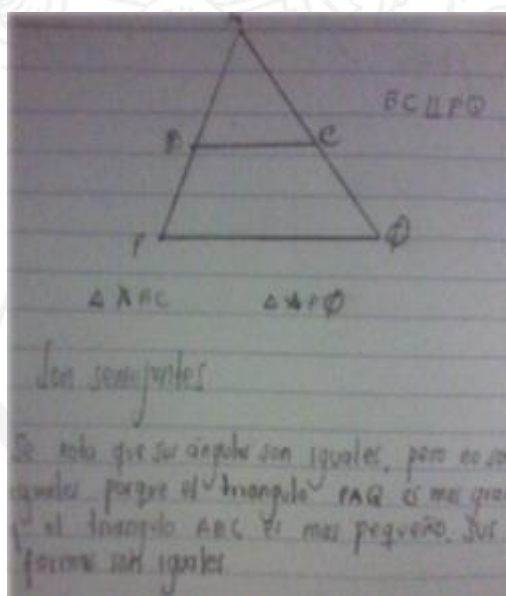 A
BC || PQ
B C
P Q
△ ABC △ APQ
Son semejantes
Se nota que sus ángulos son iguales, pero no son
iguales porque el "triangulo" PAQ es mas gran
y el triangulo ABC es mas pequeño. Sus
formas son iguales